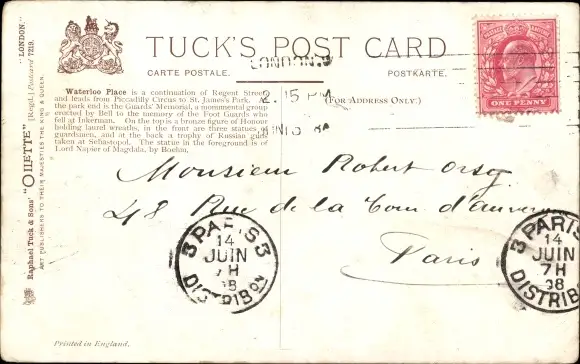 TUCK'S POST CARD
CARTE POSTALE.
POSTKARTE.
(FOR ADDRESS ONLY.)
Waterloo Place is a continuation of Regent Street
and leads from Piccadilly Circus to St. James's Park. At
the park end is the Guards' Memorial, a monumental group
erected by Bell to the memory of the Foot Guards who
fell at Inkerman. On the top is a bronze figure of Honour
holding laurel wreaths, in the front are three statues of
guardsmen, and at the back a trophy of Russian guns
taken at Sebastopol. The statue in the foreground is of
Lord Napier of Magdala, by Boehm.
LONDON.W
2. 15 PM
ONE PENNY
Raphael Tuck & Sons' "OILETTE" [Regd.] Postcard 7219. "LONDON."
ART PUBLISHERS TO THEIR MAJESTIES THE KING & QUEEN.
Monsieur Robert Orsy
48 Rue de la Tour d'auvergne
Paris
3 PARIS 3
14
JUIN
7H
08
DISTRIBON
3 PARIS
14
JUIN
7H
08
DISTRIB
Printed in England.